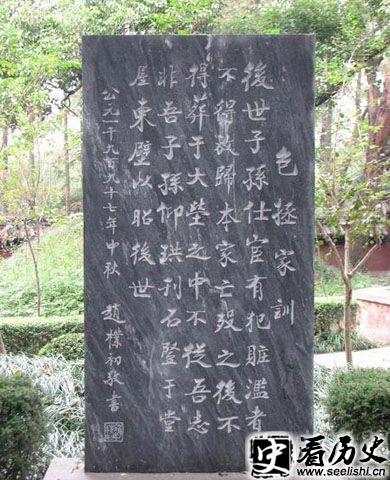 包拯家訓
後世子孫仕宦有犯賍濫者
不得放歸本家亡歿之後不
得葬于大塋之中不從吾志
非吾子孫仰珙刊石豎于堂
屋東壁以昭後世
公元一千九百九十七年中秋 趙樸初敬書
史看历史
www.seelishi.cn